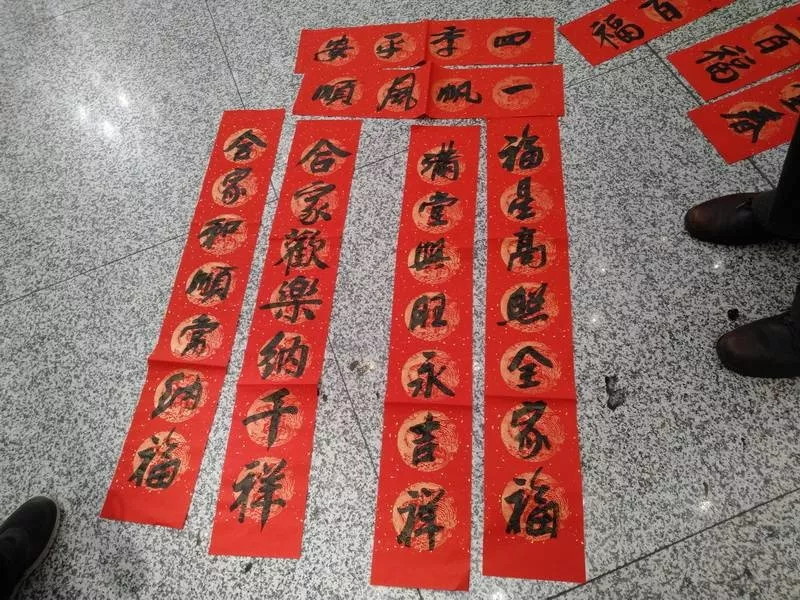 四季平安
一帆風順
福星高照全家福
滿堂興旺永吉祥
合家歡樂納千祥
合家和順常納福
百福
百福
春